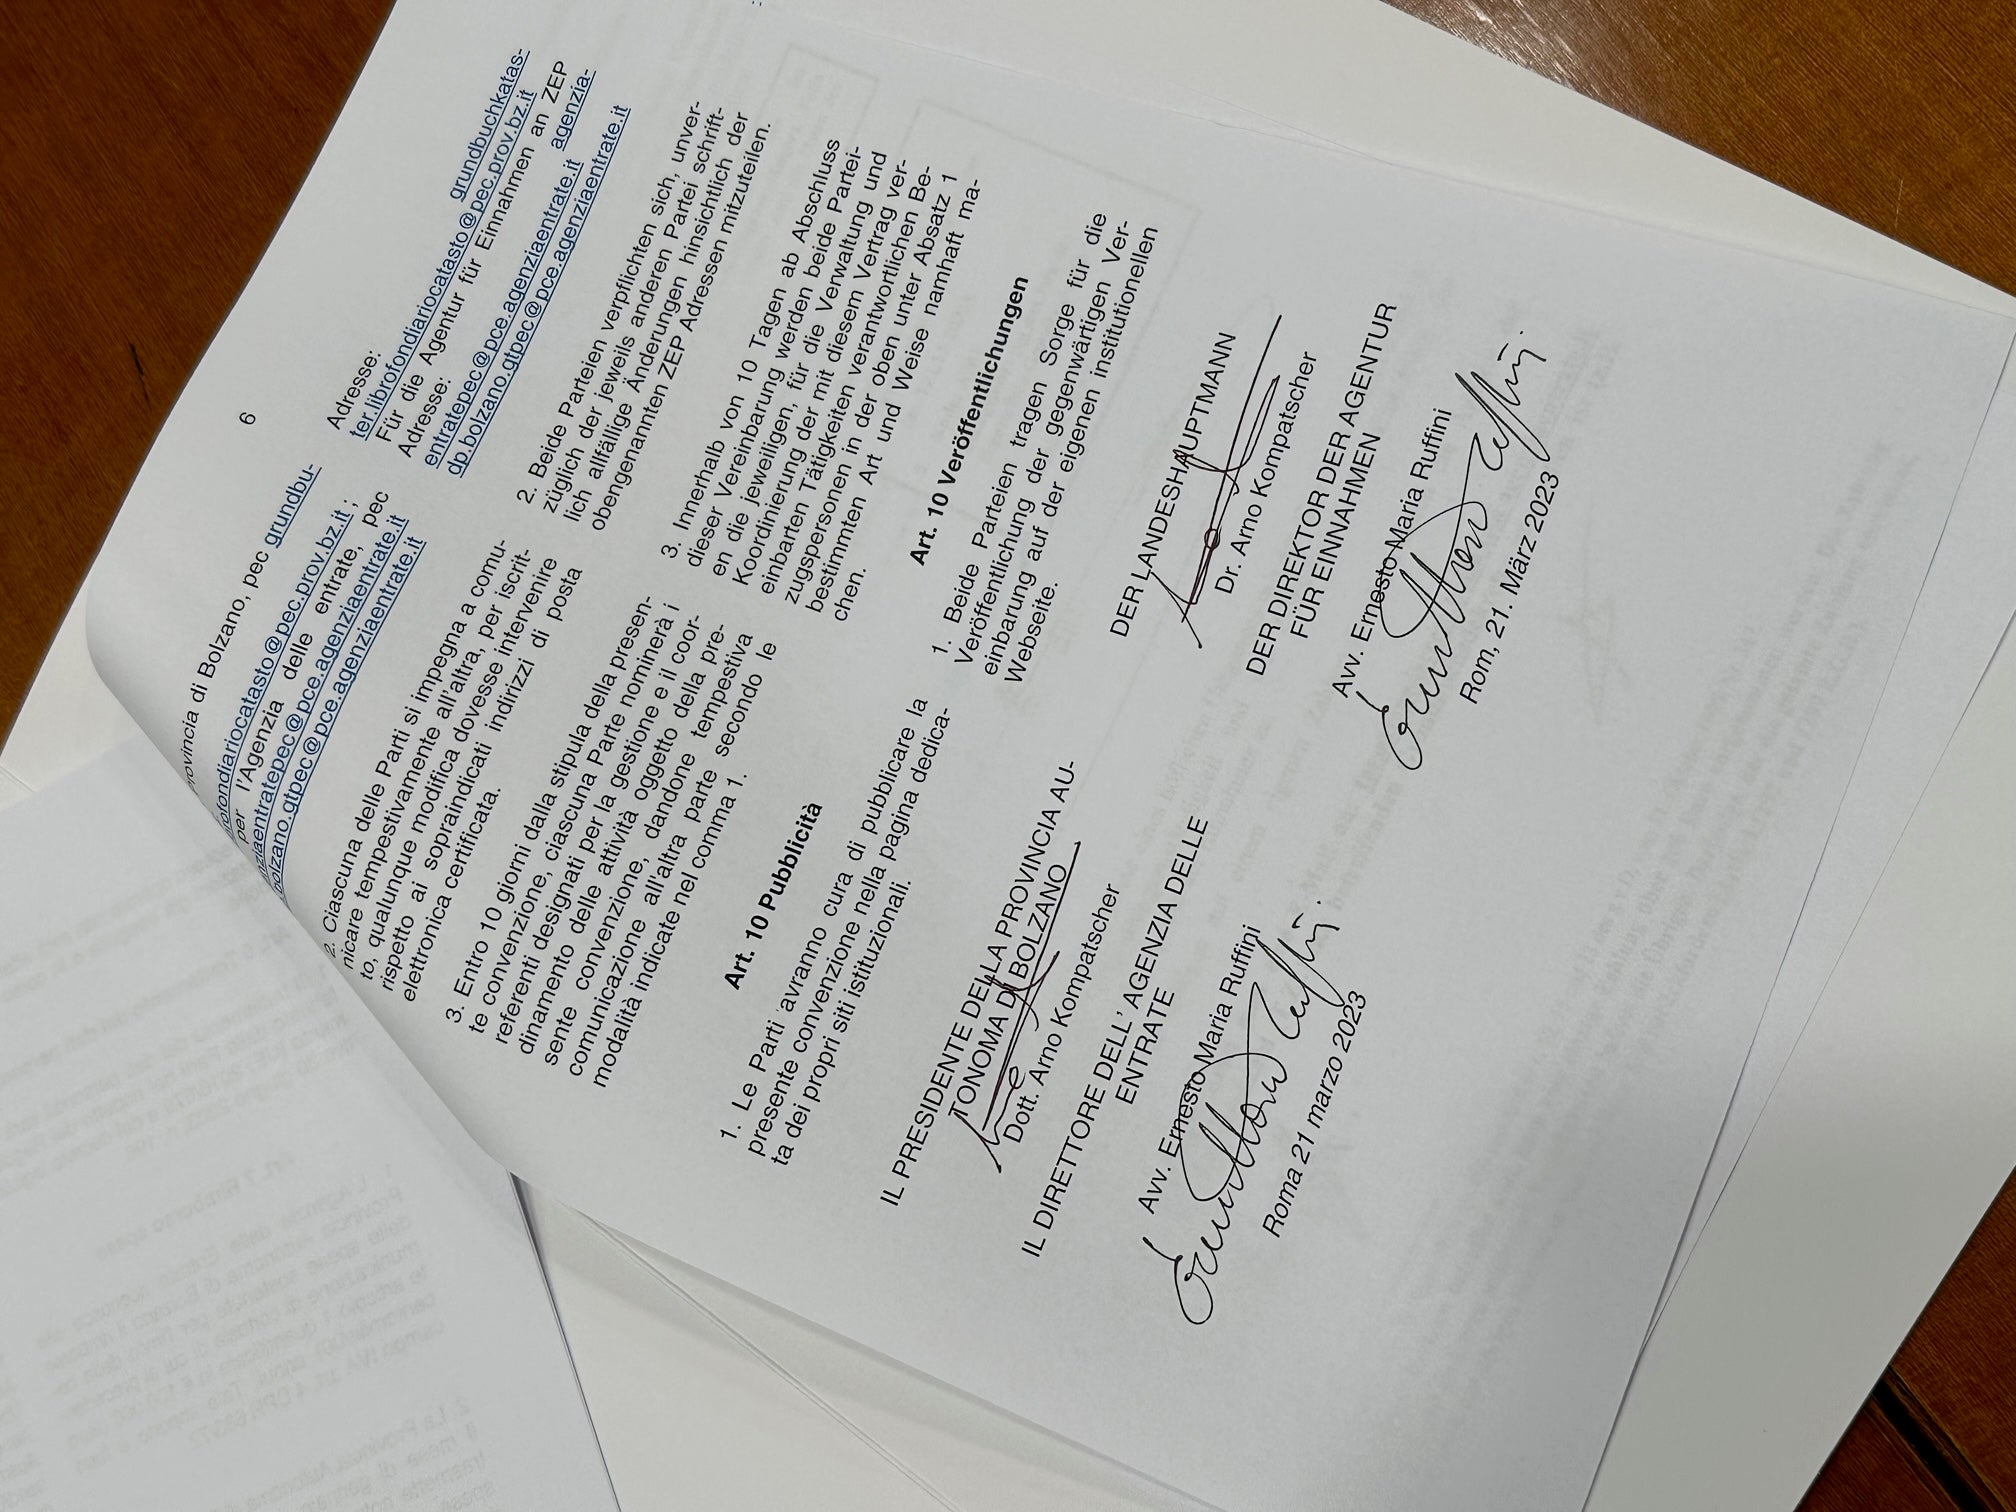 6
provincia di Bolzano, pec grundbu-
rofondiariocatasto@pec.prov.bz.it ;
per l'Agenzia delle entrate, pec
nziaentratepec@pce.agenziaentrate.it
bolzano.gtpec@pce.agenziaentrate.it
2. Ciascuna delle Parti si impegna a comu-
nicare tempestivamente all'altra, per iscrit-
to, qualunque modifica dovesse intervenire
rispetto ai sopraindicati indirizzi di posta
elettronica certificata.
3. Entro 10 giorni dalla stipula della presen-
te convenzione, ciascuna Parte nominerà i
referenti designati per la gestione e il coor-
dinamento delle attività oggetto della pre-
sente convenzione, dandone tempestiva
comunicazione all'altra parte secondo le
modalità indicate nel comma 1.
Art. 10 Pubblicità
1. Le Parti avranno cura di pubblicare la
presente convenzione nella pagina dedica-
ta dei propri siti istituzionali.
IL PRESIDENTE DELLA PROVINCIA AU-
TONOMA DI BOLZANO
Dott. Arno Kompatscher
IL DIRETTORE DELL' AGENZIA DELLE
ENTRATE
Avv. Ernesto Maria Ruffini
Roma 21 marzo 2023
Adresse: grundbuchkatas-
ter.librofondiariocatasto@pec.prov.bz.it
Für die Agentur für Einnahmen an ZEP
Adresse: agenzia-
entratepec@pce.agenziaentrate.it
dp.bolzano.gtpec@pce.agenziaentrate.it
2. Beide Parteien verpflichten sich, unver-
züglich der jeweils anderen Partei schrift-
lich allfällige Änderungen hinsichtlich der
obengenannten ZEP Adressen mitzuteilen.
3. Innerhalb von 10 Tagen ab Abschluss
dieser Vereinbarung werden beide Partei-
en die jeweiligen, für die Verwaltung und
Koordinierung der mit diesem Vertrag ver-
einbarten Tätigkeiten verantwortlichen Be-
zugspersonen in der oben unter Absatz 1
bestimmten Art und Weise namhaft ma-
chen.
Art. 10 Veröffentlichungen
1. Beide Parteien tragen Sorge für die
Veröffentlichung der gegenwärtigen Ver-
einbarung auf der eigenen institutionellen
Webseite.
DER LANDESHAUPTMANN
Dr. Arno Kompatscher
DER DIREKTOR DER AGENTUR
FÜR EINNAHMEN
Avv. Ernesto Maria Ruffini
Rom, 21. März 2023